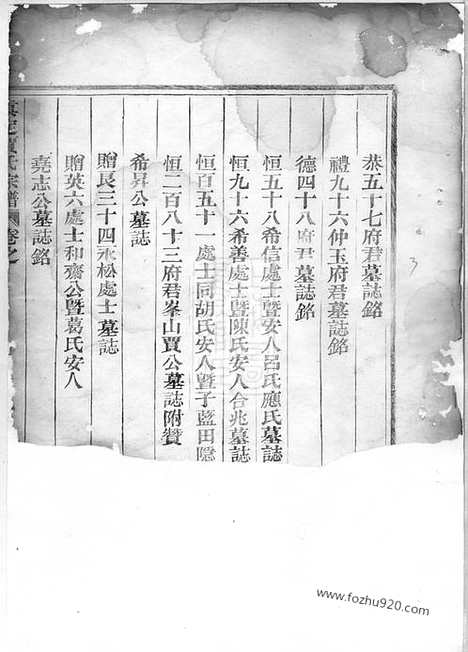 恭五十七府君墓誌銘
禮九十六仲玉府君墓誌銘
德四十八府君墓誌銘
恒五十八希信處士暨安人呂氏應氏墓誌
恒九十六希善處士暨陳氏安人合兆墓誌
恒百五十一處士同胡氏安人暨子藍田隱
恒二百八十三府君峯山賈公墓誌附贊
希昇公墓誌
贈長三十四永松處士墓誌
贈英六處士和齋公暨葛氏安人
堯志公墓誌銘
宗譜 卷之
3
www.fozhu920.com